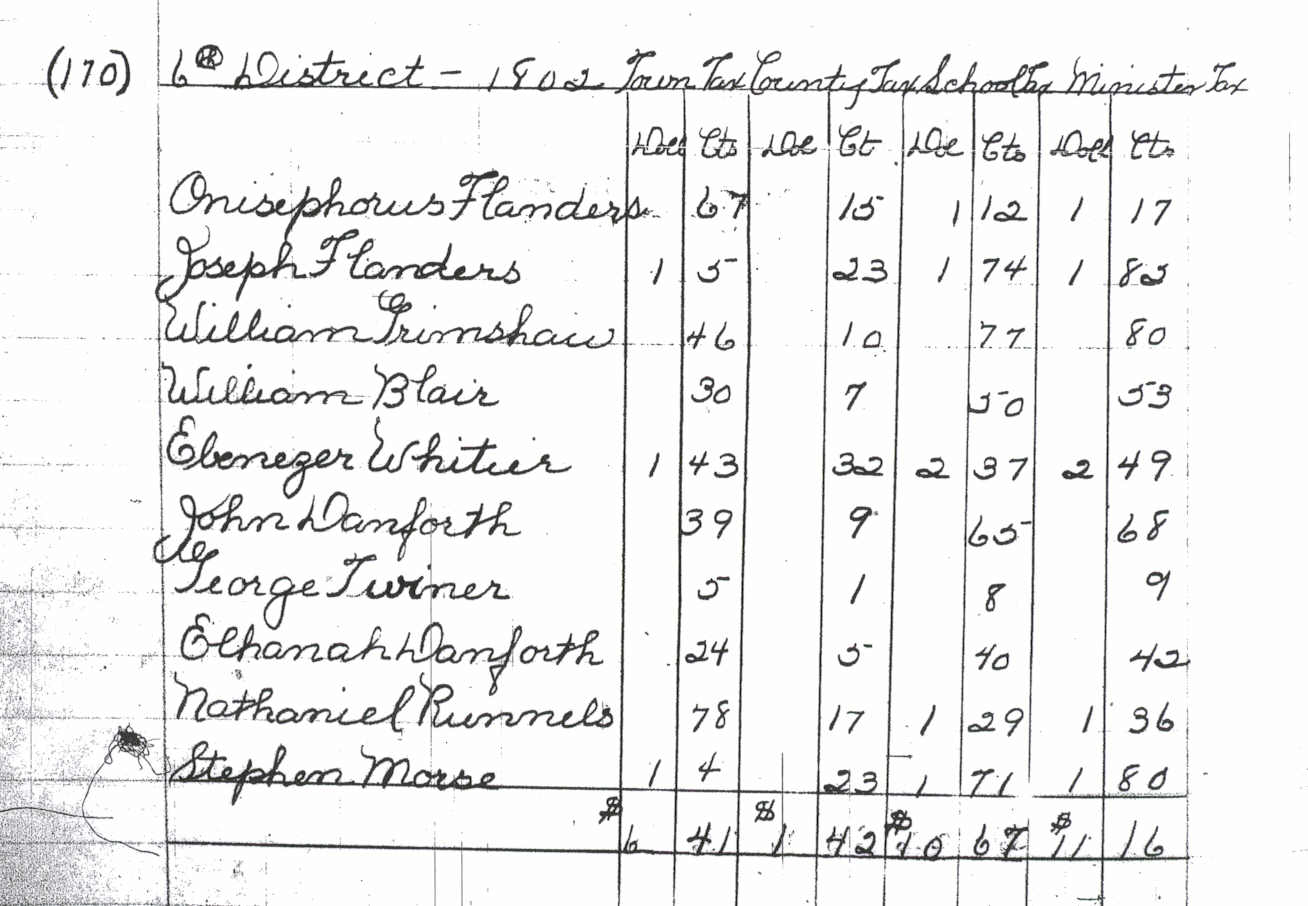 (170) 6th District - 1802 Town Tax County Tax School Tax Minister Tax
Doll Cts Dol Ct Dol Cts Doll Cts
Onisephorus Flanders 67 15 1 12 1 17
Joseph Flanders 1 5 23 1 74 1 82
William Grimshaw 46 10 77 80
William Blair 30 7 50 53
Ebenezer Whitier 1 43 32 2 37 2 49
John Danforth 39 9 65 68
George Twiner 5 1 8 9
Elhanah Danforth 24 5 40 42
Nathaniel Runnels 78 17 1 29 1 36
Stephen Morse 1 4 23 1 71 1 80
$6 41 $1 42 $10 67 $11 16